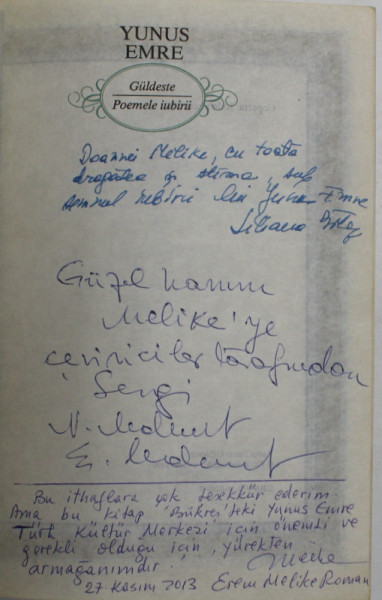 YUNUS
EMRE
Güldeste
Poemele iubirii
Doamnei Melike, cu toată
dragostea și stima, sub
semnul iubirii lui Yunus Emre
Güzel hanım
Melike'ye
çeviriciler tarafından
Sevgi
N.
E.
Bu ithaflara çok teşekkür ederim.
Ama bu kitap 'Bükreş'teki Yunus Emre
Türk Kültür Merkezi' için önemli ve
gerekli olduğu için, yürekten
armağanımdır.
27 Kasım 2013 Erem Melike Roman